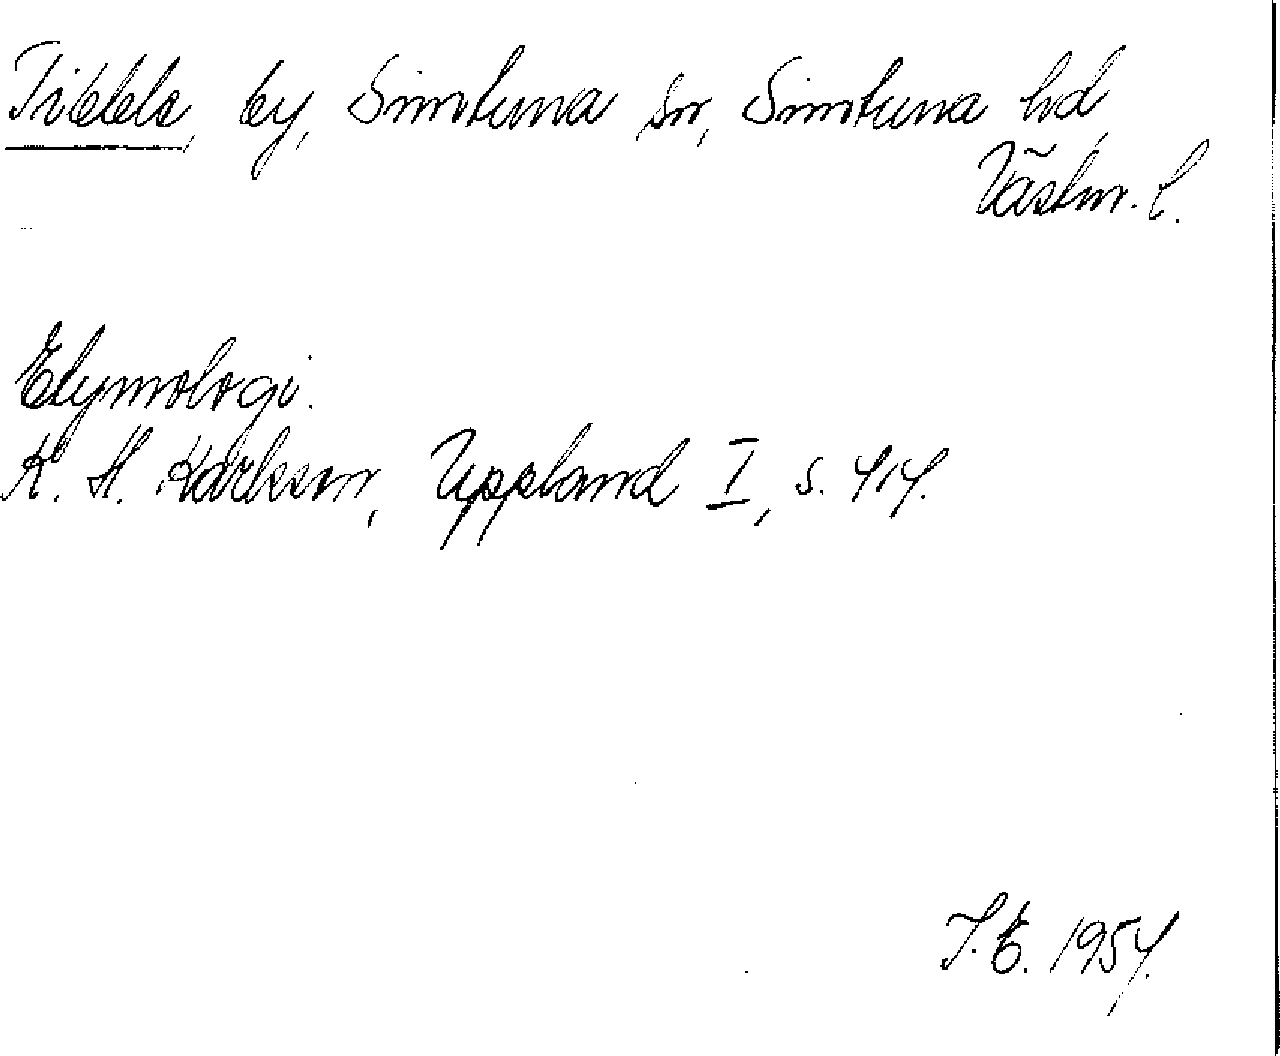 Tibble, by, Simtuna sn, Simtuna hd,
Västm. l.
Etymologi.
K. H. Karlsson, Uppland I, s. 414.
J. E. 1954.